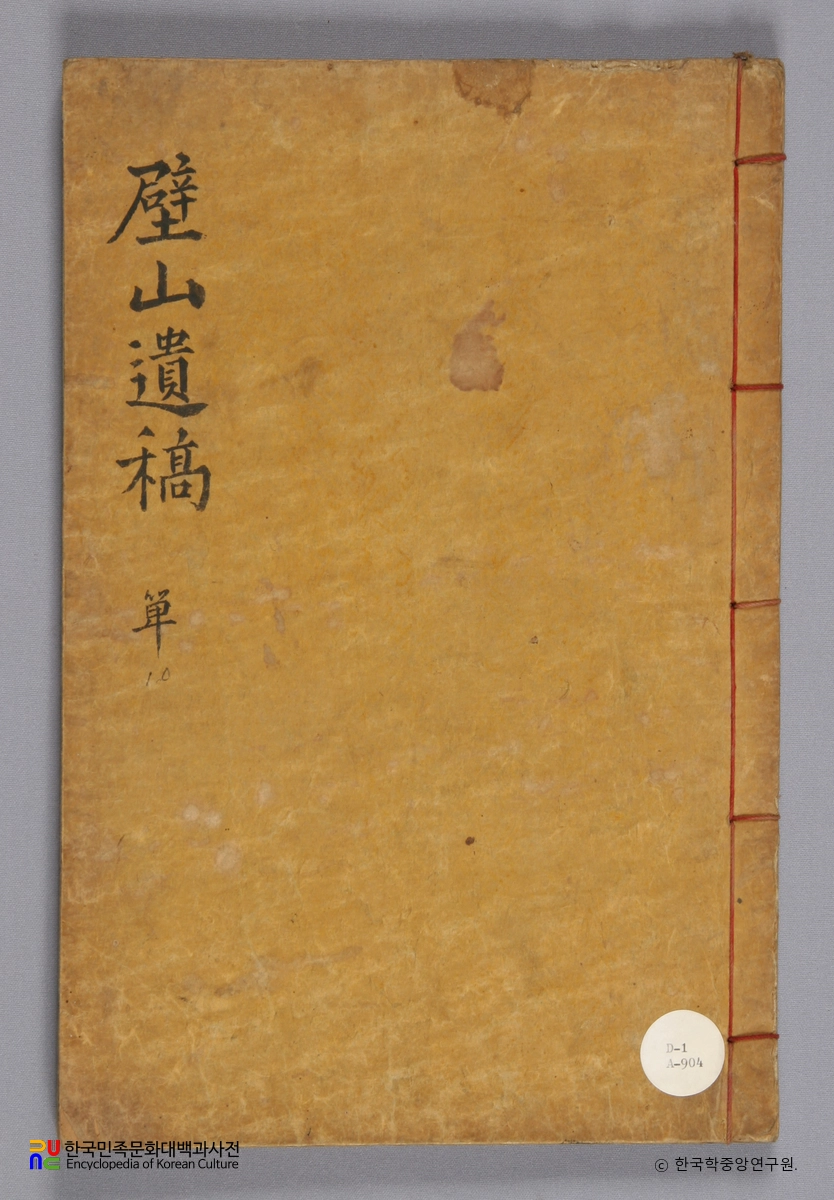 壁山遺稿
單
10
D-1
A-904
한국민족문화대백과사전
Encyclopedia of Korean Culture
ⓒ 한국학중앙연구원.